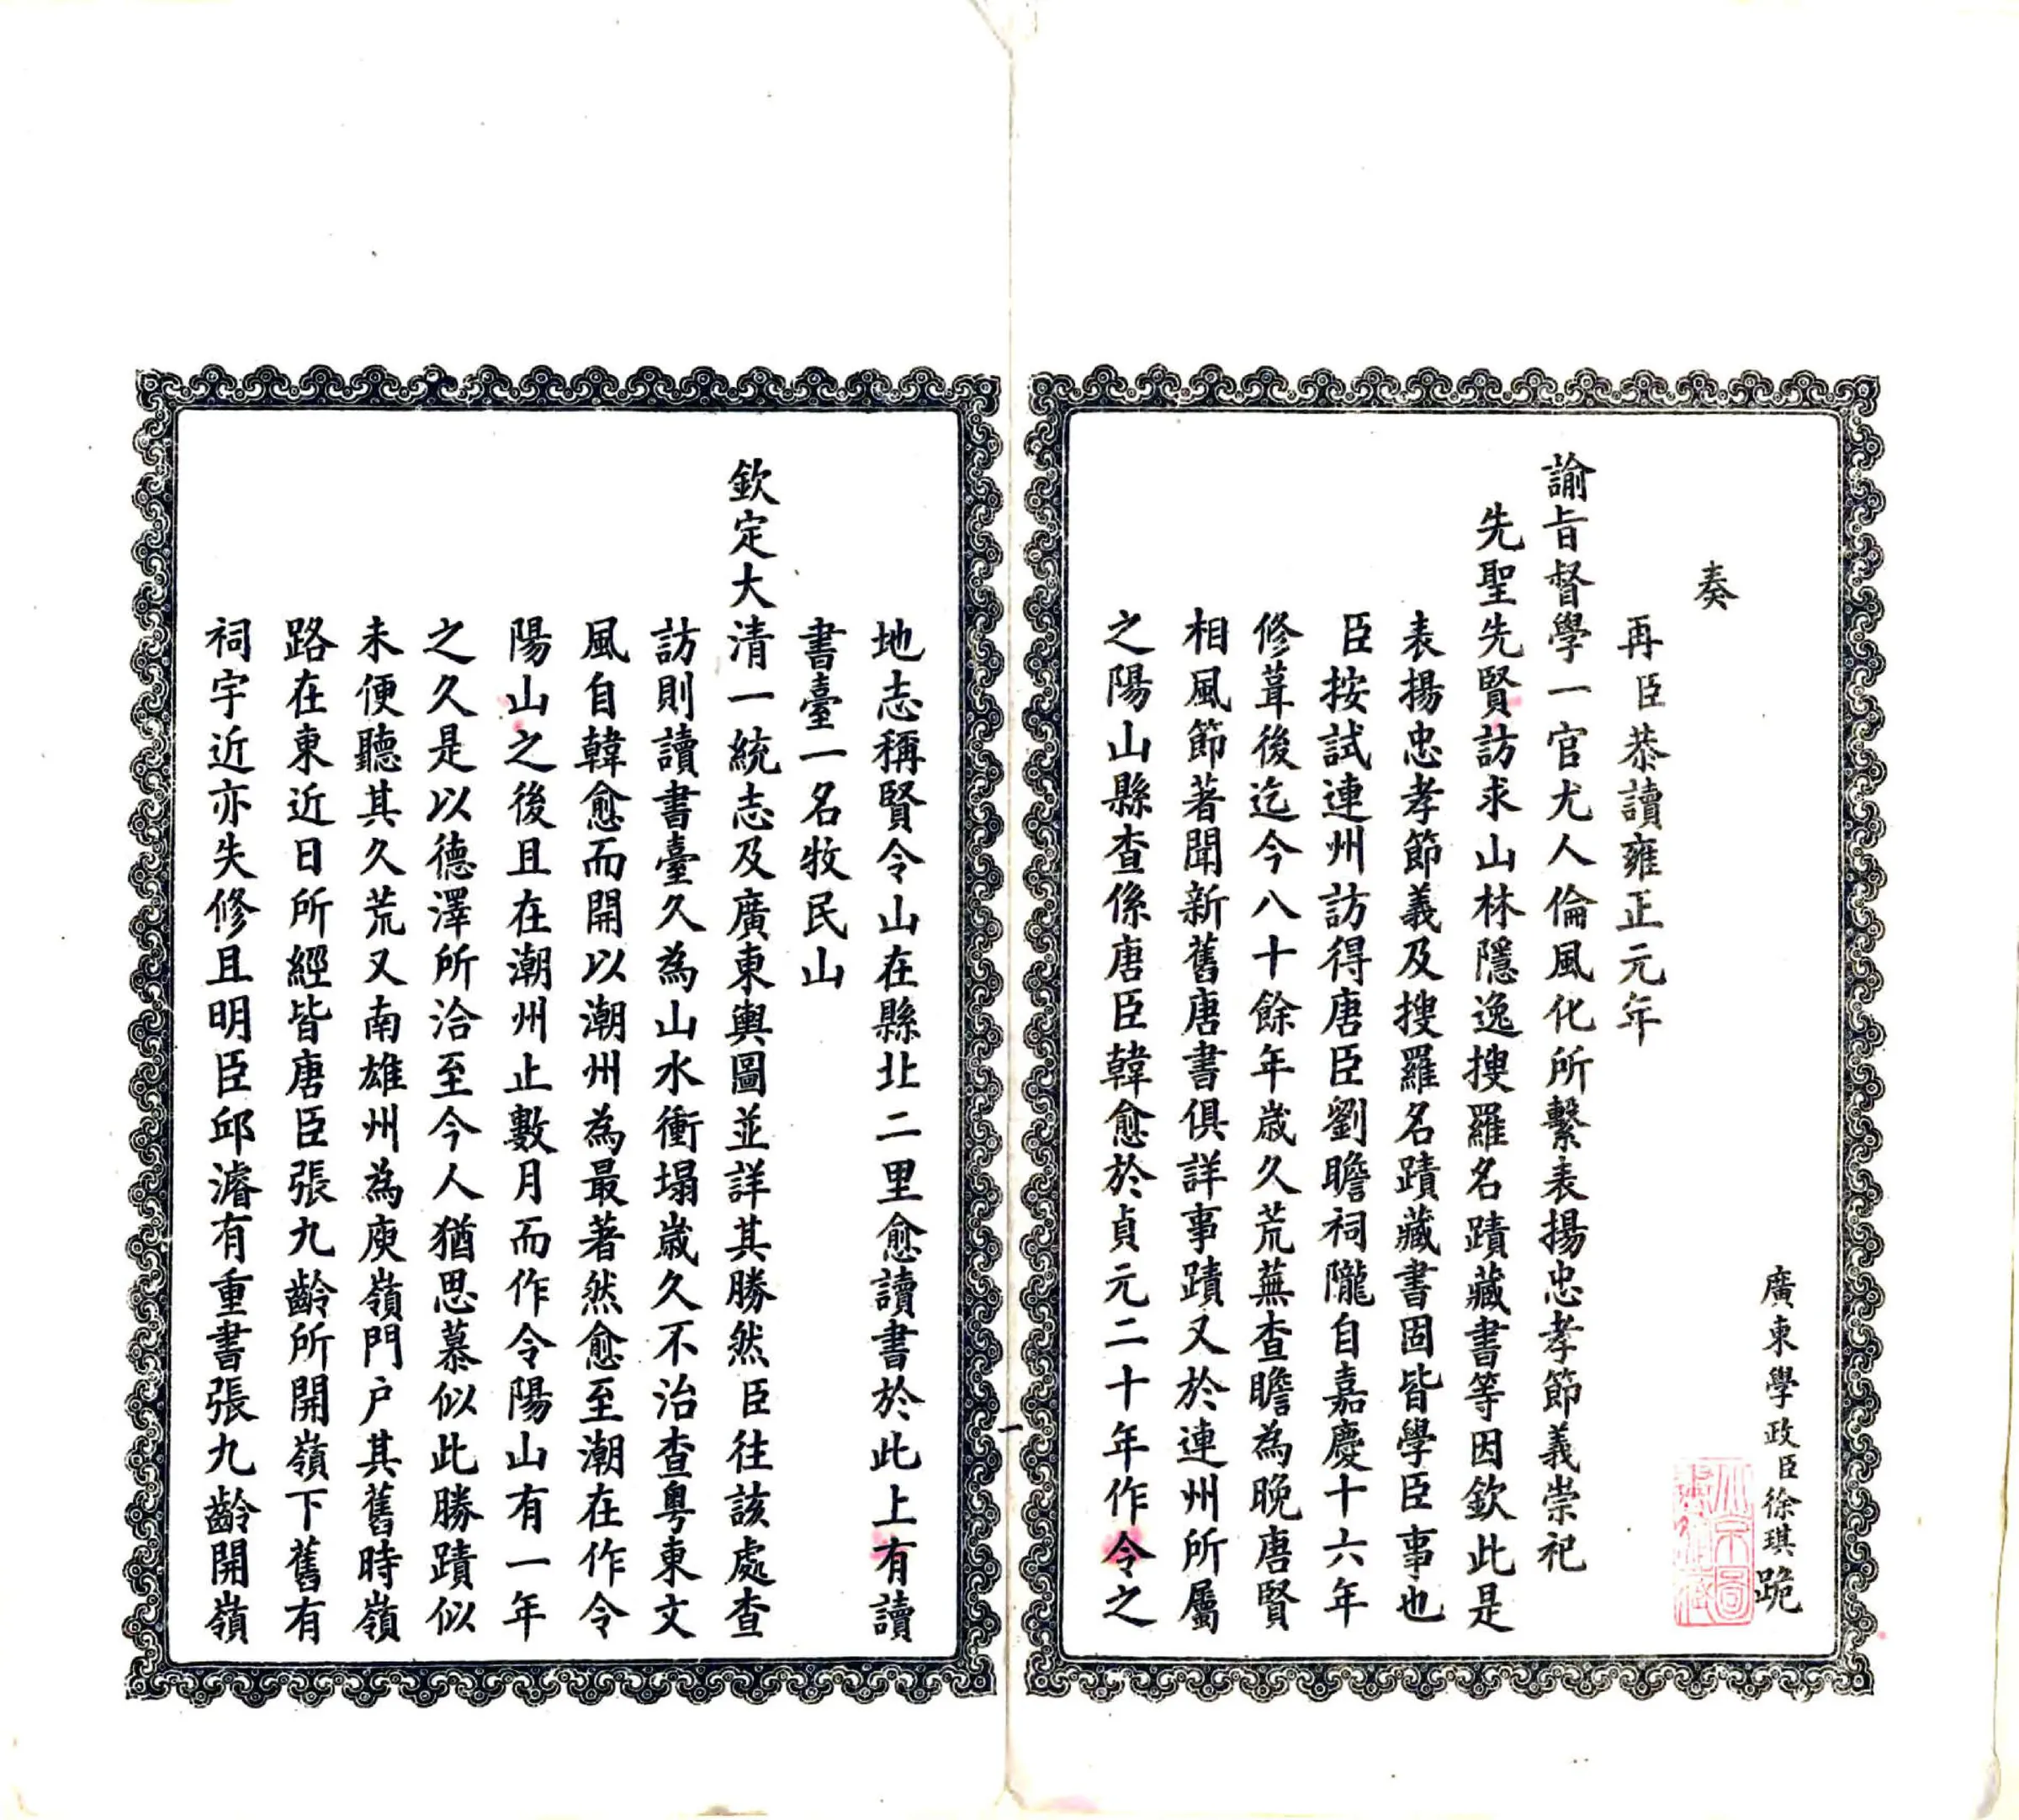 廣東學政臣徐琪跪
奏
再臣恭讀雍正元年
諭旨督學一官尤人倫風化所繫表揚忠孝節義崇祀
先聖先賢訪求山林隱逸搜羅名蹟藏書等因欽此是
表揚忠孝節義及搜羅名蹟藏書固皆學臣事也
臣按試連州訪得唐臣劉瞻祠隴自嘉慶十六年
修葺後迄今八十餘年歲久荒蕪查瞻為晚唐賢
相風節著聞新舊唐書俱詳事蹟又於連州所屬
之陽山縣查係唐臣韓愈於貞元二十年作令之
地志稱賢令山在縣北二里愈讀書於此上有讀
書臺一名牧民山
欽定大清一統志及廣東輿圖並詳其勝然臣往該處查
訪則讀書臺久為山水衝塌歲久不治查粵東文
風自韓愈而開以潮州為最著然愈至潮在作令
陽山之後且在潮州止數月而作令陽山有一年
之久是以德澤所洽至今人猶思慕似此勝蹟似
未便聽其久荒又南雄州為庾嶺門户其舊時嶺
路在東近日所經皆唐臣張九齡所開嶺下舊有
祠宇近亦失修且明臣邱濬有重書張九齡開嶺